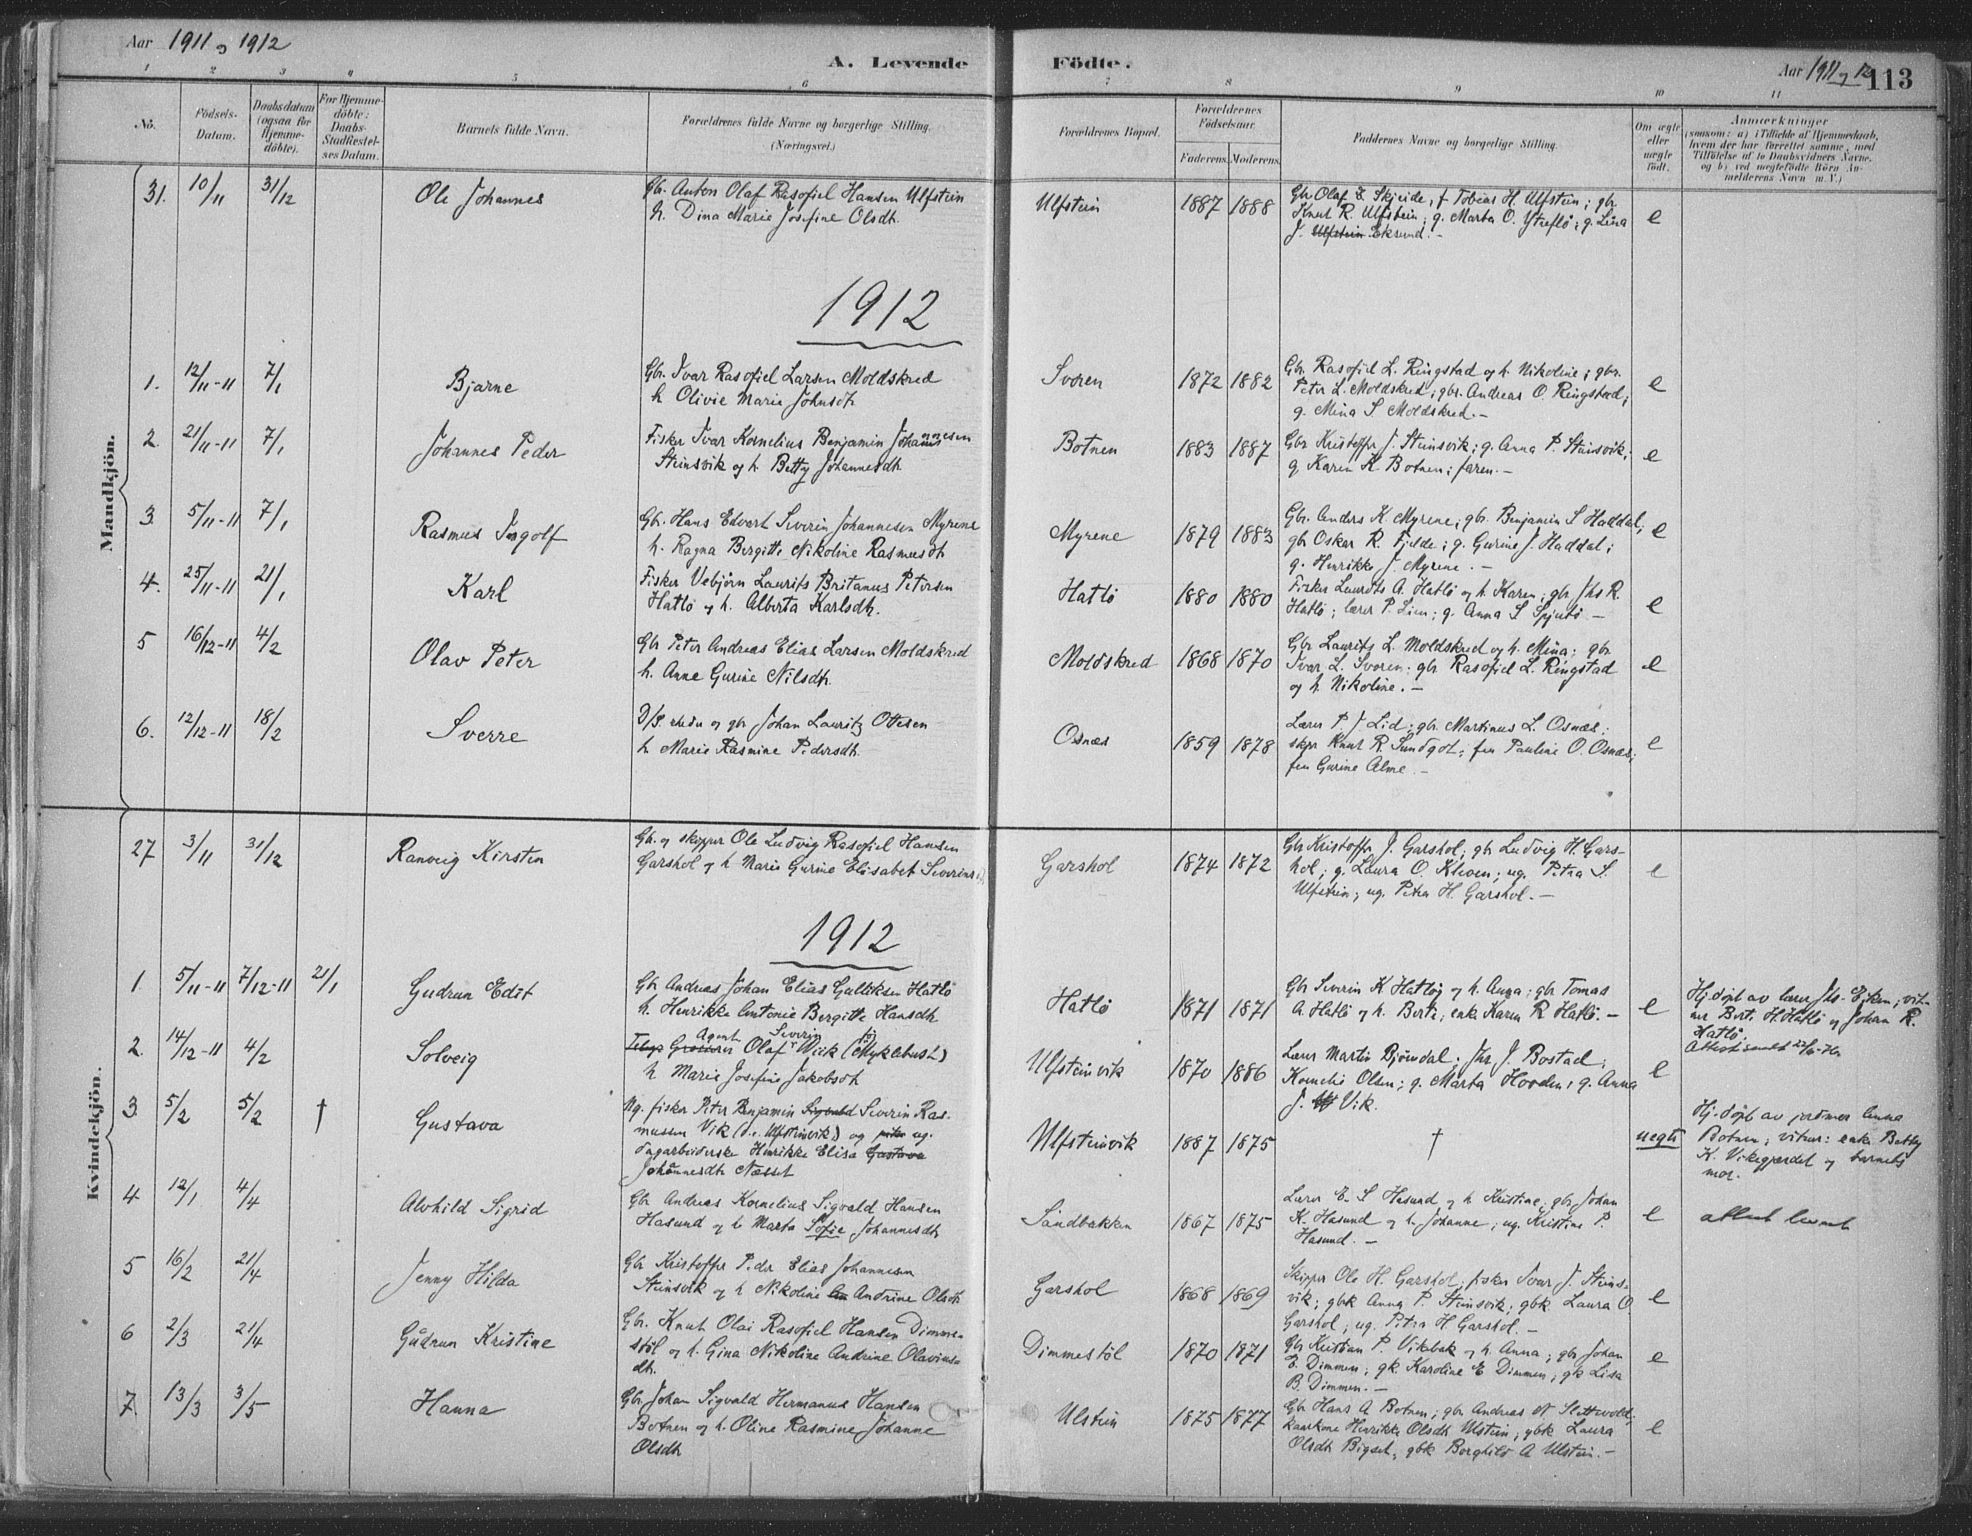 Aar 1911 og 1912
A. Levende Födte.
Aar 1911 og 12 113
1 2 3 4 5 6 7 8 9 10 11
No.
Födsels-Datum.
Daabsdatum (ogsaa for Hjemme-döbte).
For Hjemme-döbte: Daabs-Stadfæstel-ses Datum.
Barnets fulde Navn.
Forældrenes fulde Navne og borgerlige Stilling. (Næringsvei.)
Forældrenes Bopæl.
Forældrenes Födselsaar.
Faderens. Moderens.
Faddernes Navne og borgerlige Stilling.
Om ægte eller uægte födt.
Anmærkninger
(saasom: a) i Tilfælde af Hjemmedaab,
hvem der har forrettet samme, med
Tilföielse af to Daabsvidners Navne,
og b) ved uægtefödte Börn An-
melderens Navn m. V.)
Mandkjön.
31. 10/11 31/12 Ole Johannes
Gbr. Anton Olaf Rasofiel Hansen Ulfstein
h. Dina Marie Josefine Olsdh.
Ulfstein 1887 1888
Gbr Olaf E Skjeide, f Tobias H. Ulfstein; gbr.
Knut R. Ulfstein; g. Marta O. Ytreflö; g. Lina
J. Ulfstein Eksund. - e
1912
1. 12/11-11 7/1 Bjarne
Gbr. Ivar Rasofiel Larsen Moldskred
h Olivie Marie Johnsdh
Svoren 1872 1882
Gbr. Rasofiel L. Ringstad og h. Nikoline; gbr.
Peter L. Moldskred; gbr. Andreas O. Ringstad;
g. Mina S Moldskred. - e
2. 21/11-11 7/1 Johannes Peder
Fisker Ivar Kornelius Benjamin Johannesen
Steinsvik og h. Betty Johannesdh
Botnen 1883 1887
Gbr Kristoffer J. Steinsvik; g. Anna P. Steinsvik;
g. Karen K. Botnen; faren. - e
3. 5/11-11 7/1 Rasmus Ingolf
Gbr. Hans Edvart Severin Johannesen Myrene
h. Ragna Bergitte Nikoline Rasmusdh
Myrene 1879 1883
Gbr. Anders K. Myrene; gbr. Benjamin S Haddal;
gbr Oskar R. Fjelde; g. Gurine J. Haddal;
g. Henrikke J. Myrene. - e
4. 25/11-11 21/1 Karl
Fisker Vebjörn Laurits Britanus Petersen
Hatlö og h. Alberta Karlsdh.
Hatlö 1880 1880
Fisker Laurits A. Hatlö og h. Karen; gbr. Jhs R.
Hatlö; lærer P. Lien; g. Anna S Spjutö - e
5 16/12-11 4/2 Olav Peter
Gbr Peter Andreas Elias Larsen Moldskred
h. Anne Gurine Nilsdh.
Moldskred 1868 1870
Gbr Laurits L. Moldskred og h. Mina; gbr
Ivar L. Svoren; gbr Rasofiel L. Ringstad
og h. Nikoline. - e
6. 12/12-11 18/2 Sverre
D/S. rhedr og gbr Johan Lauritz Ottesen
h Marie Rasmine Pedersdh.
Osnes 1859 1878
Lærer P J Lid; gbr. Martinus L. Osnæs;
skpr Knut R. Sundgot; frn Pauline O. Osnæs;
frn Gurine Alme - e
Kvindekjön.
27 3/11 31/12 Ranveig Kirsten
Gbr. og skipper Ole Ludvig Rasofiel Hansen
Garshol og h. Marie Gurine Elisabet Severinsd.
Garshol 1874 1872
Gbr Kristoffer J. Garshol; gbr Ludvig H. Gars-
hol; g. Laura O. Kleven; ug. Petra S.
Ulfstein; ug. Petra H. Garshol. - e
1912
1. 5/11-11 7/12-11 21/1 Gudrun Edit
Gbr Andreas Johan Elias Gulliksen Hatlö
h. Henrikke Antonie Bergitte Hansdh
Hatlö 1871 1871
Gbr Severin K Hatlöy og h. Anna; gbr Tomas
A Hatlö og h. Berte; enk Karen R Hatlö. - e
Hj. döpt av lærer Jhs. Eiken; vit-
ner Bert. H. Hatlö og Johan R.
Hatlö.
2. 14/12-11 4/2 Solveig
Agent Severin
Grosserer Olaf Wiik (Myklebust)
h Marie Josefine Jakobsdh
Ulfsteinvik 1870 1886
Lærer Martin Björndal; Jhs. J. Bostad;
Kornelie Olsen; g. Marta Hovden; g. Anna
J. Vik. e
3. 5/2 5/2 † Gustava
Ng. fisker Peter Benjamin Sigvald Severin Ras-
mussen Vik (d.e. Ulfsteinvik) og ug.
dagarbeiderske Henrikke Elisa Gustava
Johannesdh Næsset
Ulfsteinvik 1887 1875 † uegte
Hj. döpt av jordmor Anna
Botnen; vitner: enke Betty
K. Vikegjærdet og barnets
mor.
4 12/1 4/4 Alvhild Sigrid
Gbr Andreas Kornelius Sigvald Hansen
Hasund og h Marta Sofie Johannesdh
Sandbakken 1867 1875
Lærer E. S Hasund og h Kristine; gbr Johan
K. Hasund og h. Johanne; ug. Kristine P.
Hasund. - e
5 16/2 21/4 Jenny Hilda
Gbr Kristoffer Peder Elias Johannesen
Steinsvik og h Nikoline An Andrine Olsdh
Garshol 1868 1869
Skipper Ole H. Garshol; fisker Ivar J. Steins-
vik; gbk Anna P. Steinsvik; gbk Laura O.
Garshol; ug. Petra H Garshol. - e
6 2/3 21/4 Gudrun Kristine
Gbr. Knut Olai Rasofiel Hansen Dimme-
stöl og h. Gina Nikoline Andrine Olavius-
dh.
Dimmestöl 1870 1871
Gbr Kristian P. Vikebak og h Anna; gbr Johan
E. Dimmen; gk Karoline E Dimmen; gk Lisa
B. Dimmen. - e
7. 13/3 3/5 Hanna
Gbr. Johan Sigvald Hermanus Hansen
Botnen og h. Oline Rasmine Johanne
Olsdh
Ulstein 1875 1877
Gbr Hans A Botnen; gbr Andreas N Slettevold;
kaarkone Henrikke Olsdh Ulstein; gbk Laura
Olsdh Bigset, gbk Borghild A Ulstein. - e